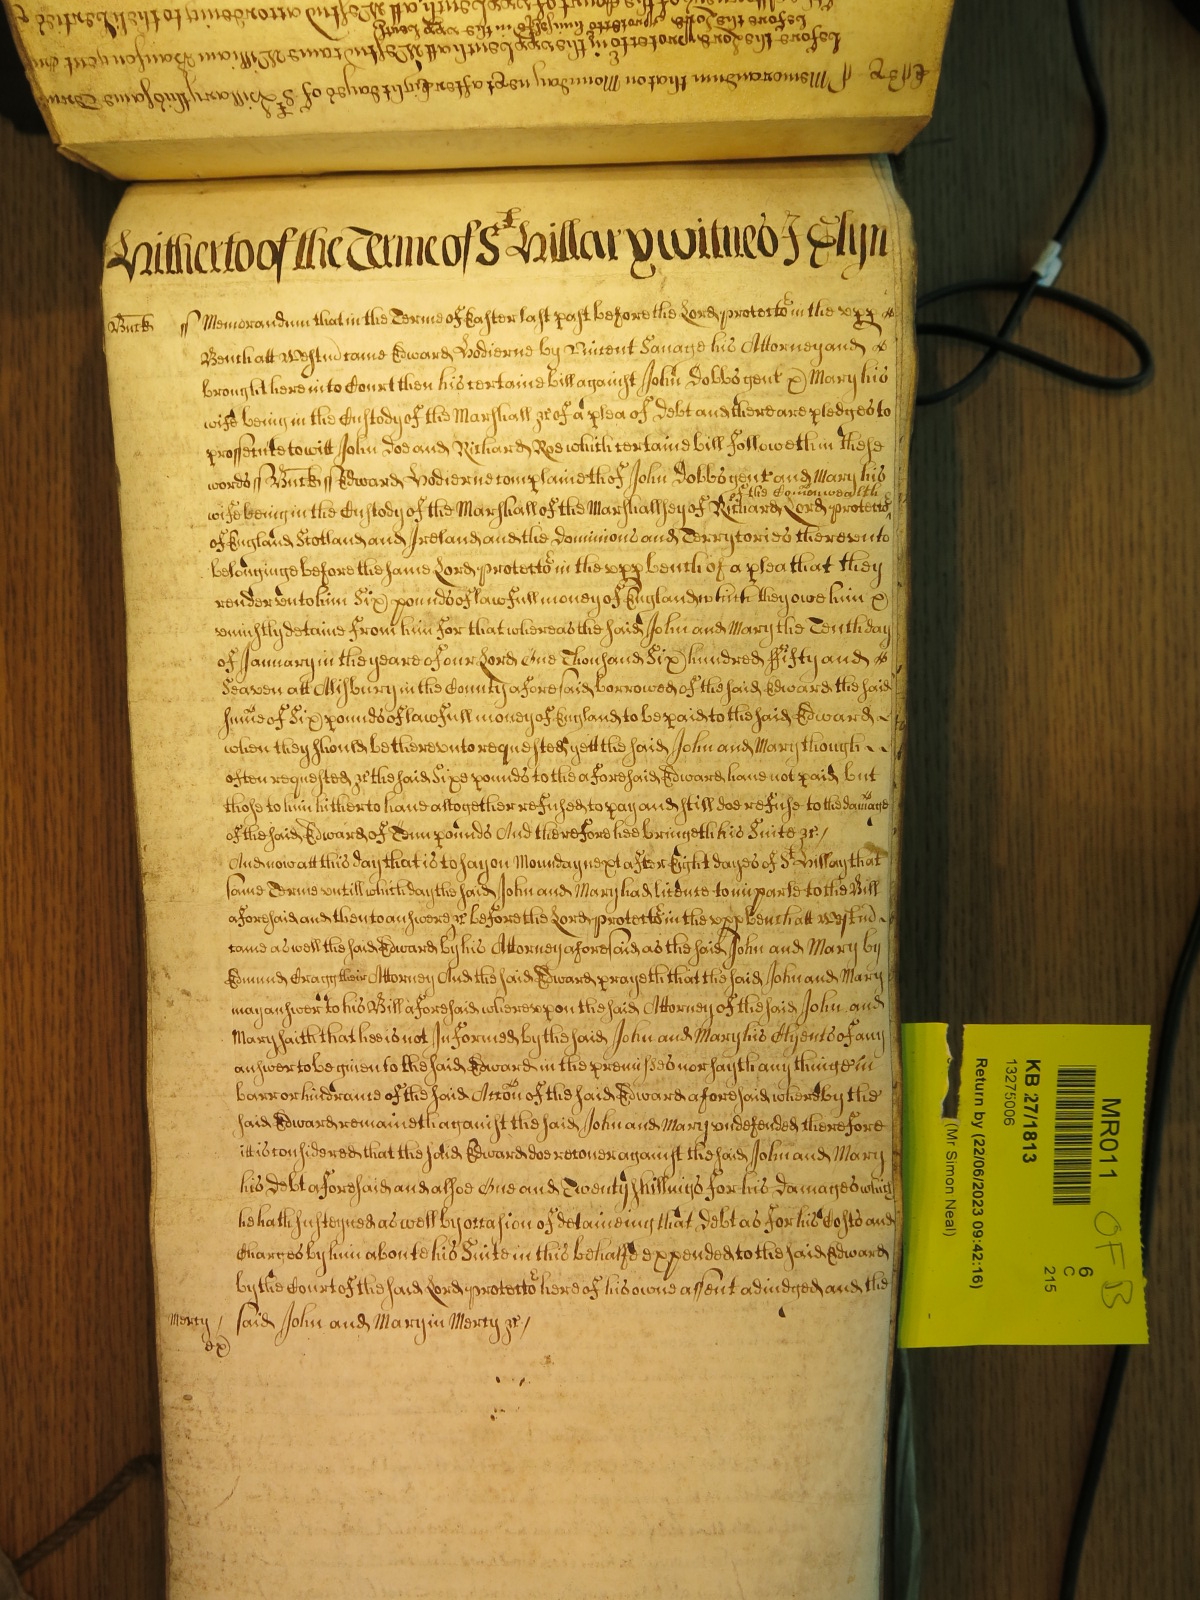 Hitherto of the Terme of St Hillary witnes J Glyn
Buck ss Memorandum that in the Terme of Easter last past before the Lord protector in the upp
Bench att Westm came Edward Hodierne by Vincent Savage his Attorney and
brought here into Court then his certaine bill against John Dobbs gent & Mary his
wife being in the Custody of the Marshall &c of a plea of Debt and there are pledges to
prossecute to witt John Doe and Richard Roe which certaine bill followeth in these
words ss Buck ss Edward Hodierne complaineth of John Dobbs gent and Mary his
of the Comonwealth
wife being in the Custody of the Marshall of the Marshallsey of Richard Lord protector
of England Scotland and Ireland and the Dominions and Terrytories thereunto
belonginge before the same Lord protector in the upp bench of a plea that they
render unto him Six pounds of lawfull money of England which they owe him &
uniustly detaine from him for that whereas the said John and Mary the Tenth day
of January in the yeare of our Lord One Thousand Six hundred ffifty and
Seaven att Alisbury in the County aforesaid borrowed of the said Edward the said
sume of Six pounds of lawfull money of England to be paid to the said Edward
when they should be thereunto requested yett the said John and Mary though
often requested &c the said Sixe pounds to the aforesaid Edward have not paid but
those to him hitherto have altogether refused to pay and still doe refuse to the damage
of the said Edward of Tenn pounds And therefore hee bringeth his Suite &c /
And now att this day that is to say on Mounday next after Eight dayes of St Hillary that
same Terme untill which day the said John and Mary had licence to imparle to the Bill
aforesaid and then to answere &c before the Lord protector in the upp bench att Westm
came as well the said Edward by his Attorney aforesaid as the said John and Mary by
Edmund Cragg their Attorney And the said Edward prayeth that the said John and Mary
may answer to his Bill aforesaid whereupon the said Attorney of the said John and
Mary saith that hee is not Informed by the said John and Mary his Clyents of any
answer to be given to the said Edward in the premisses nor sayth any thinge in
barr or hindrance of the said Accon of the said Edward aforesaid whereby the
said Edward remaineth against the said John and Mary undefended therefore
itt is considered that the said Edward doe recover against the said John and Mary
his Debt aforesaid and alsoe One and Twenty shillings for his Damages which
he hath susteyned as well by occasion of detaineing that Debt as for his Costs and
Charges by him about his Suite in this behalfe expended to the said Edward
by the Court of the said Lord protector here of his owne assent adiudged and the
Mercy / said John and Mary in Mercy &c /
MR011
KB 27/1813
13275006
Return by (22/06/2023 09:42:16)
(Mr Simon Neal)
6
C
215
OFB